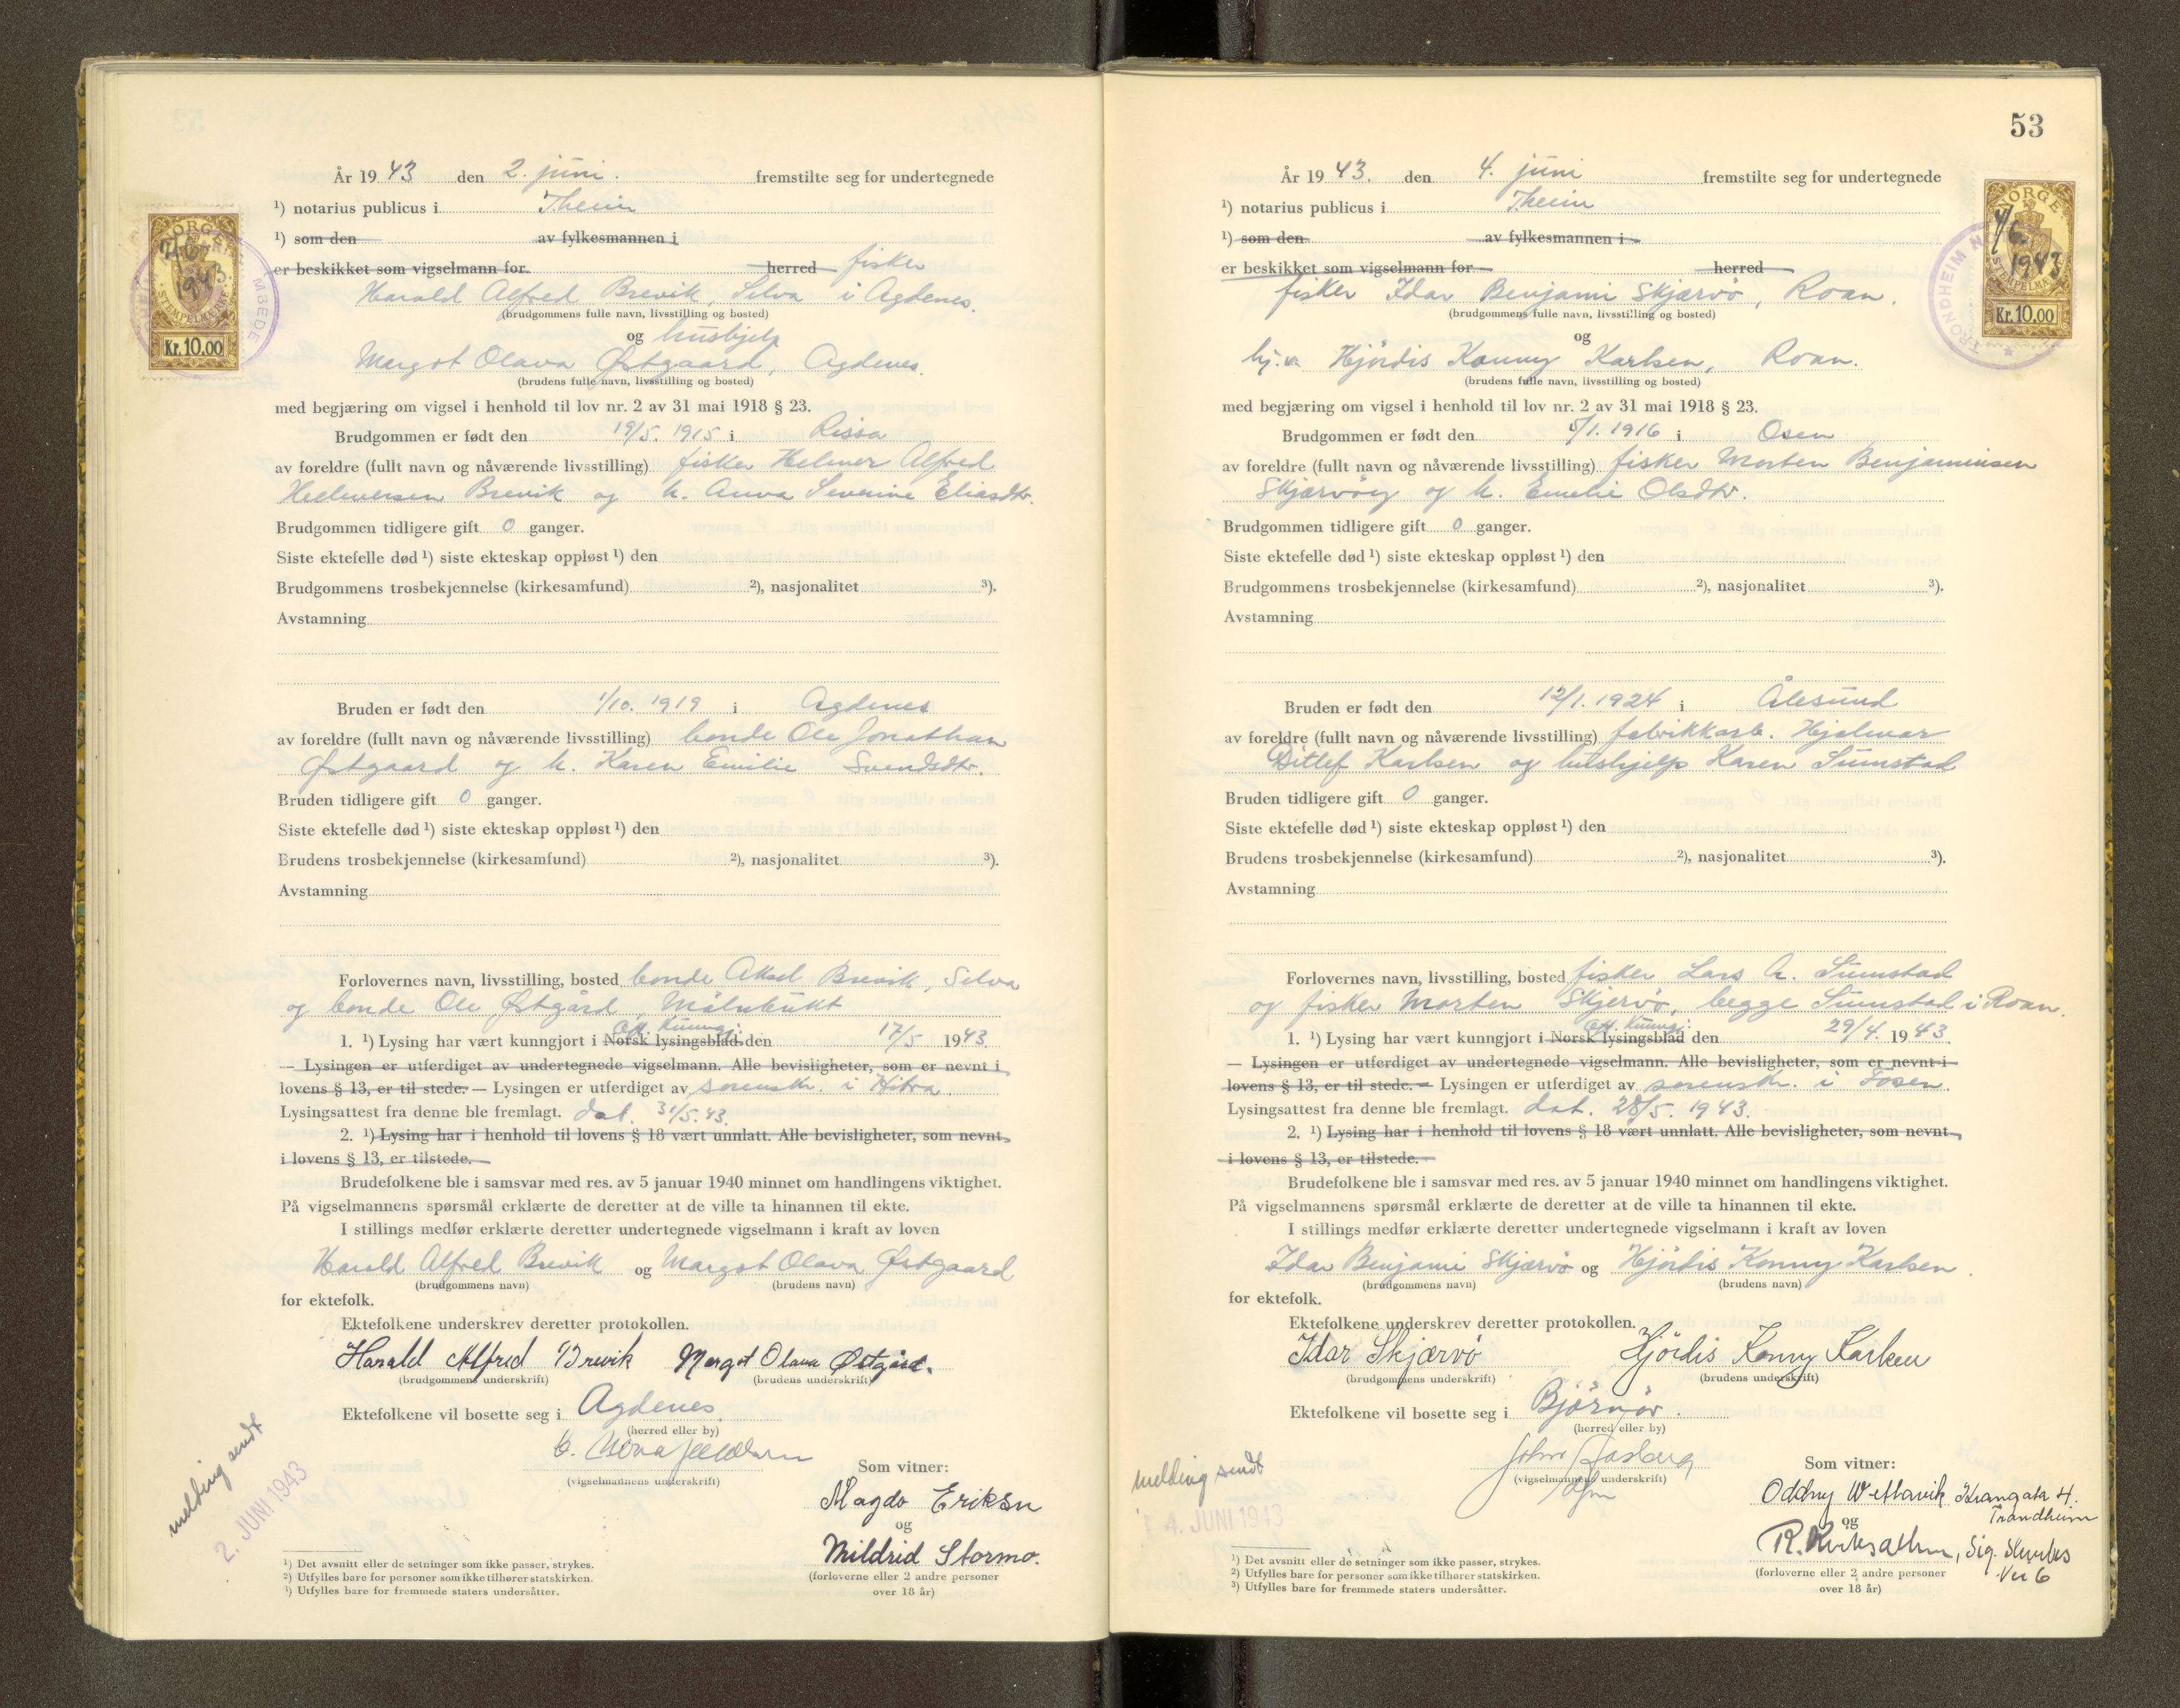 År 1943 den 2. juni. fremstilte seg for undertegnede
¹) notarius publicus i Theim
¹) som den av fylkesmannen i
er beskikket som vigselmann for herred fisker
Harald Alfred Brevik, Selva i Agdenes.
(brudgommens fulle navn, livsstilling og bosted)
og hushjelp
Margot Olava Østgaard, Agdenes.
(brudens fulle navn, livsstilling og bosted)
med begjæring om vigsel i henhold til lov nr. 2 av 31 mai 1918 § 23.
Brudgommen er født den 19/5. 1915 i Rissa
av foreldre (fullt navn og nåværende livsstilling) fisker Helmer Alfred
Helmersen Brevik og h. Anna Severine Eliasdtr.
Brudgommen tidligere gift 0 ganger.
Siste ektefelle død ¹) siste ekteskap oppløst ¹) den
Brudgommens trosbekjennelse (kirkesamfund) ²), nasjonalitet ³).
Avstamning
Bruden er født den 1/10. 1919 i Agdenes
av foreldre (fullt navn og nåværende livsstilling) bonde Ole Jonathan
Østgaard og h. Karen Emilie Svendsdtr.
Bruden tidligere gift 0 ganger.
Siste ektefelle død ¹) siste ekteskap oppløst ¹) den
Brudens trosbekjennelse (kirkesamfund) ²), nasjonalitet ³).
Avstamning
Forlovernes navn, livsstilling, bosted bonde Aksel Brevik, Selva
og bonde Ole Østgård, Mølnbukt
off. kunngj:
1. ¹) Lysing har vært kunngjort i Norsk lysingsblad. den 17/5 1943.
— Lysingen er utferdiget av undertegnede vigselmann. Alle bevisligheter, som er nevnt i
lovens § 13, er til stede. — Lysingen er utferdiget av sorenskr. i Hitra.
Lysingsattest fra denne ble fremlagt. dat. 31/5. 43.
2. ¹) Lysing har i henhold til lovens § 18 vært unnlatt. Alle bevisligheter, som nevnt
i lovens § 13, er tilstede. —
Brudefolkene ble i samsvar med res. av 5 januar 1940 minnet om handlingens viktighet.
På vigselmannens spørsmål erklærte de deretter at de ville ta hinannen til ekte.
I stillings medfør erklærte deretter undertegnede vigselmann i kraft av loven
Harald Alfred Brevik og Margot Olava Østgaard
(brudgommens navn) (brudens navn)
for ektefolk.
Ektefolkene underskrev deretter protokollen.
Harald Alfred Brevik Margot Olava Østgård.
(brudgommens underskrift) (brudens underskrift)
Ektefolkene vil bosette seg i Agdenes.
(herred eller by)
(vigselmannens underskrift)
Som vitner:
Magda Eriksen
og
Mildrid Stormo.
(forloverne eller 2 andre personer
over 18 år)
melding sendt
2. JUNI 1943
¹) Det avsnitt eller de setninger som ikke passer, strykes.
²) Utfylles bare for personer som ikke tilhører statskirken.
³) Utfylles bare for fremmede staters undersåtter.
NORGE
2/6
1943.
STEMPELMERKE
Kr. 10.00
53
År 1943. den 4. juni fremstilte seg for undertegnede
¹) notarius publicus i Theim
¹) som den av fylkesmannen i
er beskikket som vigselmann for herred
fisker Idar Benjami Skjærvö, Roan.
(brudgommens fulle navn, livsstilling og bosted)
og
hj.v. Hjördis Konny Karlsen, Roan.
(brudens fulle navn, livsstilling og bosted)
med begjæring om vigsel i henhold til lov nr. 2 av 31 mai 1918 § 23.
Brudgommen er født den 5/1. 1916 i Osen
av foreldre (fullt navn og nåværende livsstilling) fisker Morten Benjaminsen
Skjærvöy og h. Emelie Olsdtr.
Brudgommen tidligere gift 0 ganger.
Siste ektefelle død ¹) siste ekteskap oppløst ¹) den
Brudgommens trosbekjennelse (kirkesamfund) ²), nasjonalitet ³).
Avstamning
Bruden er født den 12/1. 1924 i Ålesund
av foreldre (fullt navn og nåværende livsstilling) fabrikkarb. Hjalmar
Ditlef Karlsen og hushjelp Karen Sumstad
Bruden tidligere gift 0 ganger.
Siste ektefelle død ¹) siste ekteskap oppløst ¹) den
Brudens trosbekjennelse (kirkesamfund) ²), nasjonalitet ³).
Avstamning
Forlovernes navn, livsstilling, bosted fisker Lars A. Sumstad
og fisker Morten Skjervö, begge Sumstad i Roan.
off. kunngj:
1. ¹) Lysing har vært kunngjort i Norsk lysingsblad den 29/4. 1943.
— Lysingen er utferdiget av undertegnede vigselmann. Alle bevisligheter, som er nevnt i
lovens § 13, er til stede. — Lysingen er utferdiget av sorenskr. i Fosen.
Lysingsattest fra denne ble fremlagt. dat. 28/5. 1943.
2. ¹) Lysing har i henhold til lovens § 18 vært unnlatt. Alle bevisligheter, som nevnt
i lovens § 13, er tilstede. —
Brudefolkene ble i samsvar med res. av 5 januar 1940 minnet om handlingens viktighet.
På vigselmannens spørsmål erklærte de deretter at de ville ta hinannen til ekte.
I stillings medfør erklærte deretter undertegnede vigselmann i kraft av loven
Idar Benjami Skjærvö og Hjördis Konny Karlsen
(brudgommens navn) (brudens navn)
for ektefolk.
Ektefolkene underskrev deretter protokollen.
Idar Skjærvö Hjördis Konny Karlsen
(brudgommens underskrift) (brudens underskrift)
Ektefolkene vil bosette seg i Björnör.
(herred eller by)
John Aasberg
(vigselmannens underskrift)
Som vitner:
Oddny Wettavik Krangata 4.
Trondheim
og
(forloverne eller 2 andre personer
over 18 år)
melding sendt
4. JUNI 1943
¹) Det avsnitt eller de setninger som ikke passer, strykes.
²) Utfylles bare for personer som ikke tilhører statskirken.
³) Utfylles bare for fremmede staters undersåtter.
NORGE
4/6.
1943
STEMPELMERKE
Kr. 10.00
TRONDHEIM